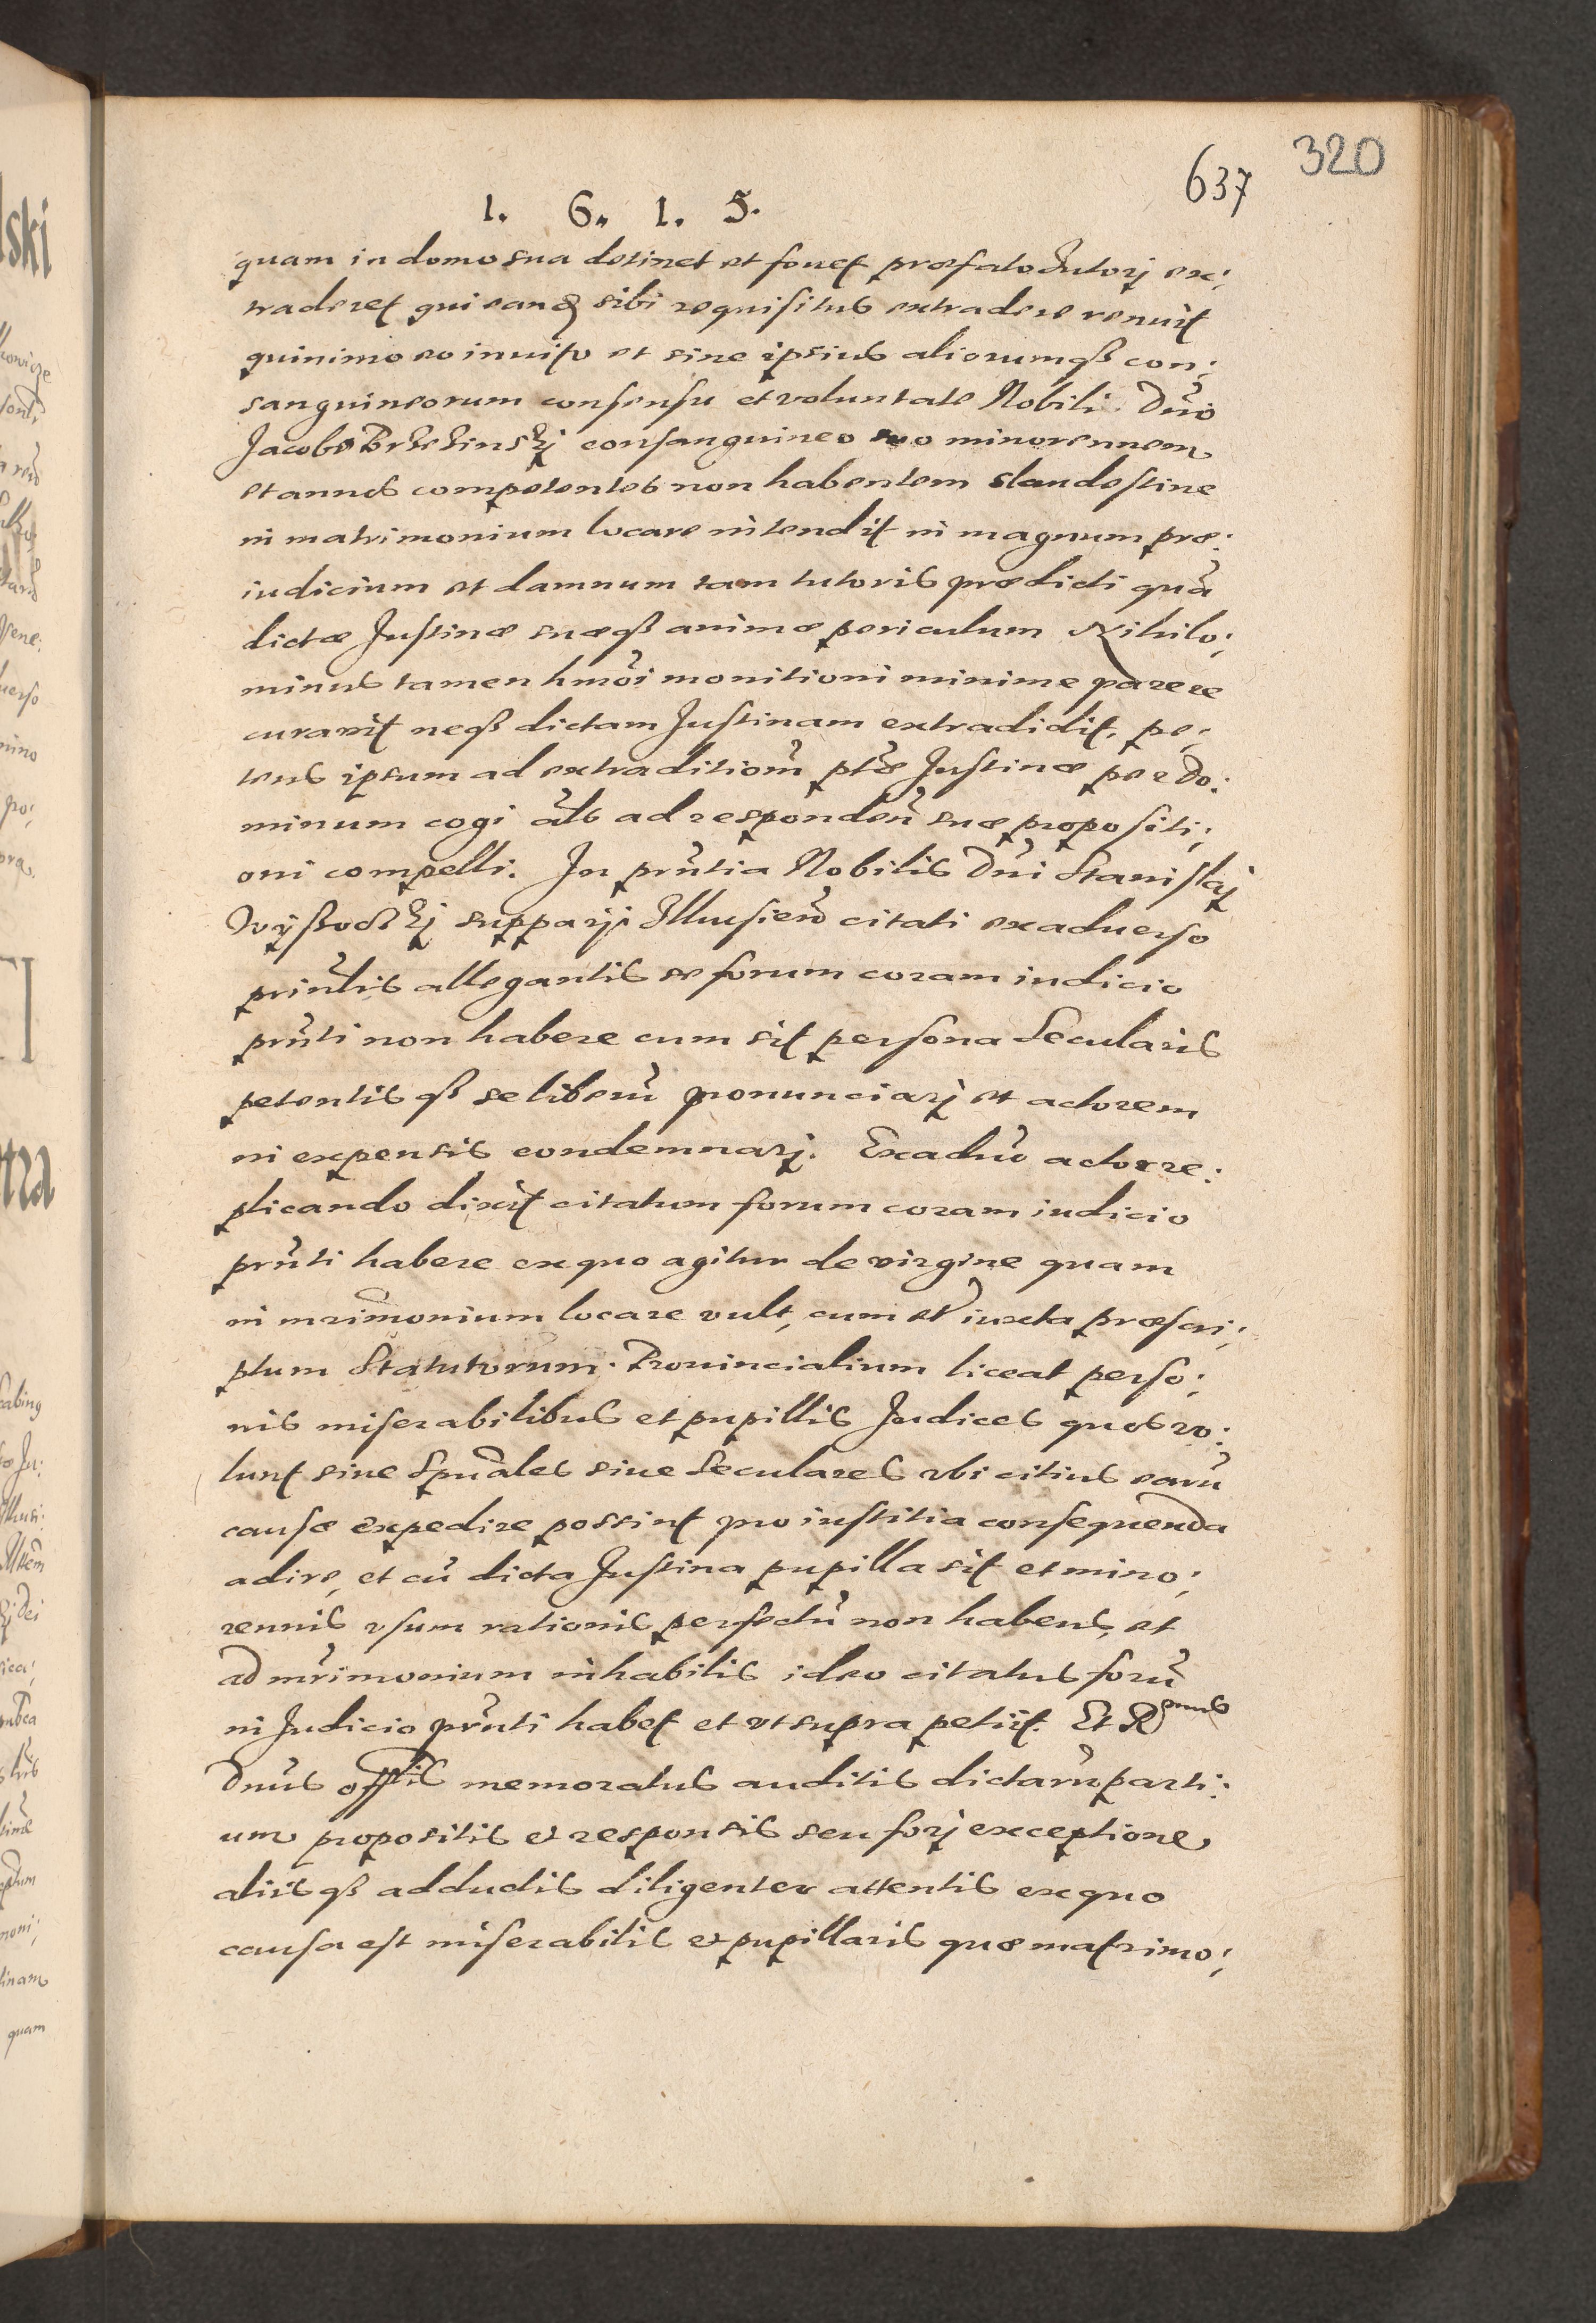 320
637
1. 6. 1. 5.
quam in domo sua detinet et fouet præfato Tutorj ex:
traderet qui eandem sibi requisitus extradere renuit
quinimo eo inuito et sine ipsius aliorumqß con:
sanguineorum consensu et voluntate Nobili Dnō
Jacobo Brzezinskj consanguineo suo minorennem
et annos competentes non habentem clandestine
in matrimonium locare intendit in magnum præ:
iudicium et damnum tam tutoris prædicti quā
dictæ Justinæ suæqß animæ periculum Nihilo:
minus tamen hmōi monitioni minime parere
curauit neqß dictam Justinam extradidit, pe:
tens ipsum ad extraditionē ptæ Justinæ per Do:
minum cogi als ad respondeñ suæ propositi:
oni compelli. In pñtia Nobilis Dñi Stanislaj
supparij citati ex aduerso
principlis allegantis se forum coram iudicio
pñti non habere cum sit persona Secularis
petentis qß se liberū pronunciarj et actorem
in expensis condemnarj. Exaduo actor re:
plicando dixit citatum forum coram iudicio
pñti habere ex quo agitur de virgine quam
in mrimonium locare vult, cum et iuxta præscri:
ptum Statutorum Prouincialium liceat perso:
nis miserabilibus et pupillis Judices quos vo:
lunt siue Spūales siue Seculares vbi citius earū
causæ expedire possint pro iustitia consequenda
adire, et cū dicta Justina pupilla sit et mino:
rennis vsum rationis perfectū non habens, et
ad mrimonium inhabilis ideo citatus forū
in Judicio pñti habet et vt supra petijt. Et R
Dnūs offlis memoratus auditis dictarū parti:
um propositis et responsis seu forj exceptione
aliisqß adductis diligenter attentis ex quo
causa est miserabilis et pupillaris quæ matrimo: